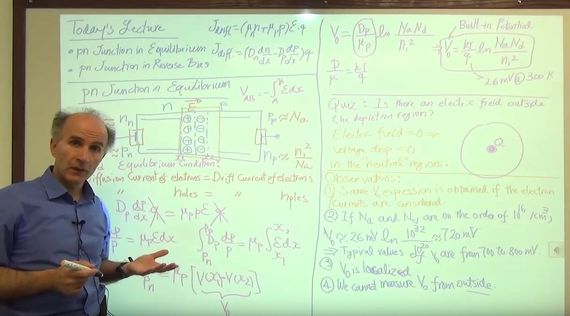 Today's Lecture
J_drift = (μ_n n + μ_p p) E.q
• pn Junction in Equilibrium
J_diff. = (D_n dn/dx - D_p dp/dx) q
• pn Junction in Reverse Bias
pn Junction in Equilibrium
V_AB = -∫ E dx
n
E
p
n_n
P_p ≈ Na
n_p ≈ n_i²/Na
Equilibrium
Diffusion Current of electrons = Drift Current of electrons
" " holes = " " holes
D_p dp/dx = μ_p p E
= μ_p E dx
∫ D_p dp/p = μ_p ∫ E dx
P_n
μ_p [V(x_1) - V(x_2)]
V_0
V_0 = D_p/μ_p ln Na Nd/n_i²
Built-in Potential
⇒ V_0 = kT/q ln Na Nd/n_i²
D/μ = kT/q
26mV @ 300K
Quiz: Is there an electric field outside
the depletion region?
Electric field = 0 ⇒
Voltage drop = 0
in the neutral regions.
Observations:
① Same V_0 expression is obtained if the electron
currents are considered
② If Na and Nd are on the order of 10^16 /cm³,
V_0 ≈ 26 mV ln 10^32/10^20 ≈ 720 mV
⇒ Typical values of V_0 are from 700 to 800 mV.
③ V_0 is localized
④ We cannot measure V_0 from outside.